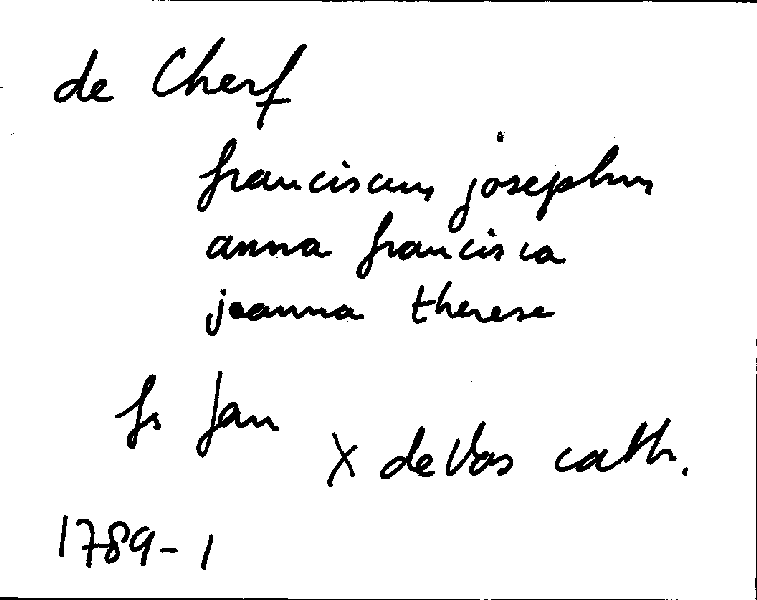 de Cherf
franciscus josephus
anna francisca
joanna therese
fs Jan
X de Vos cath.
1789-1